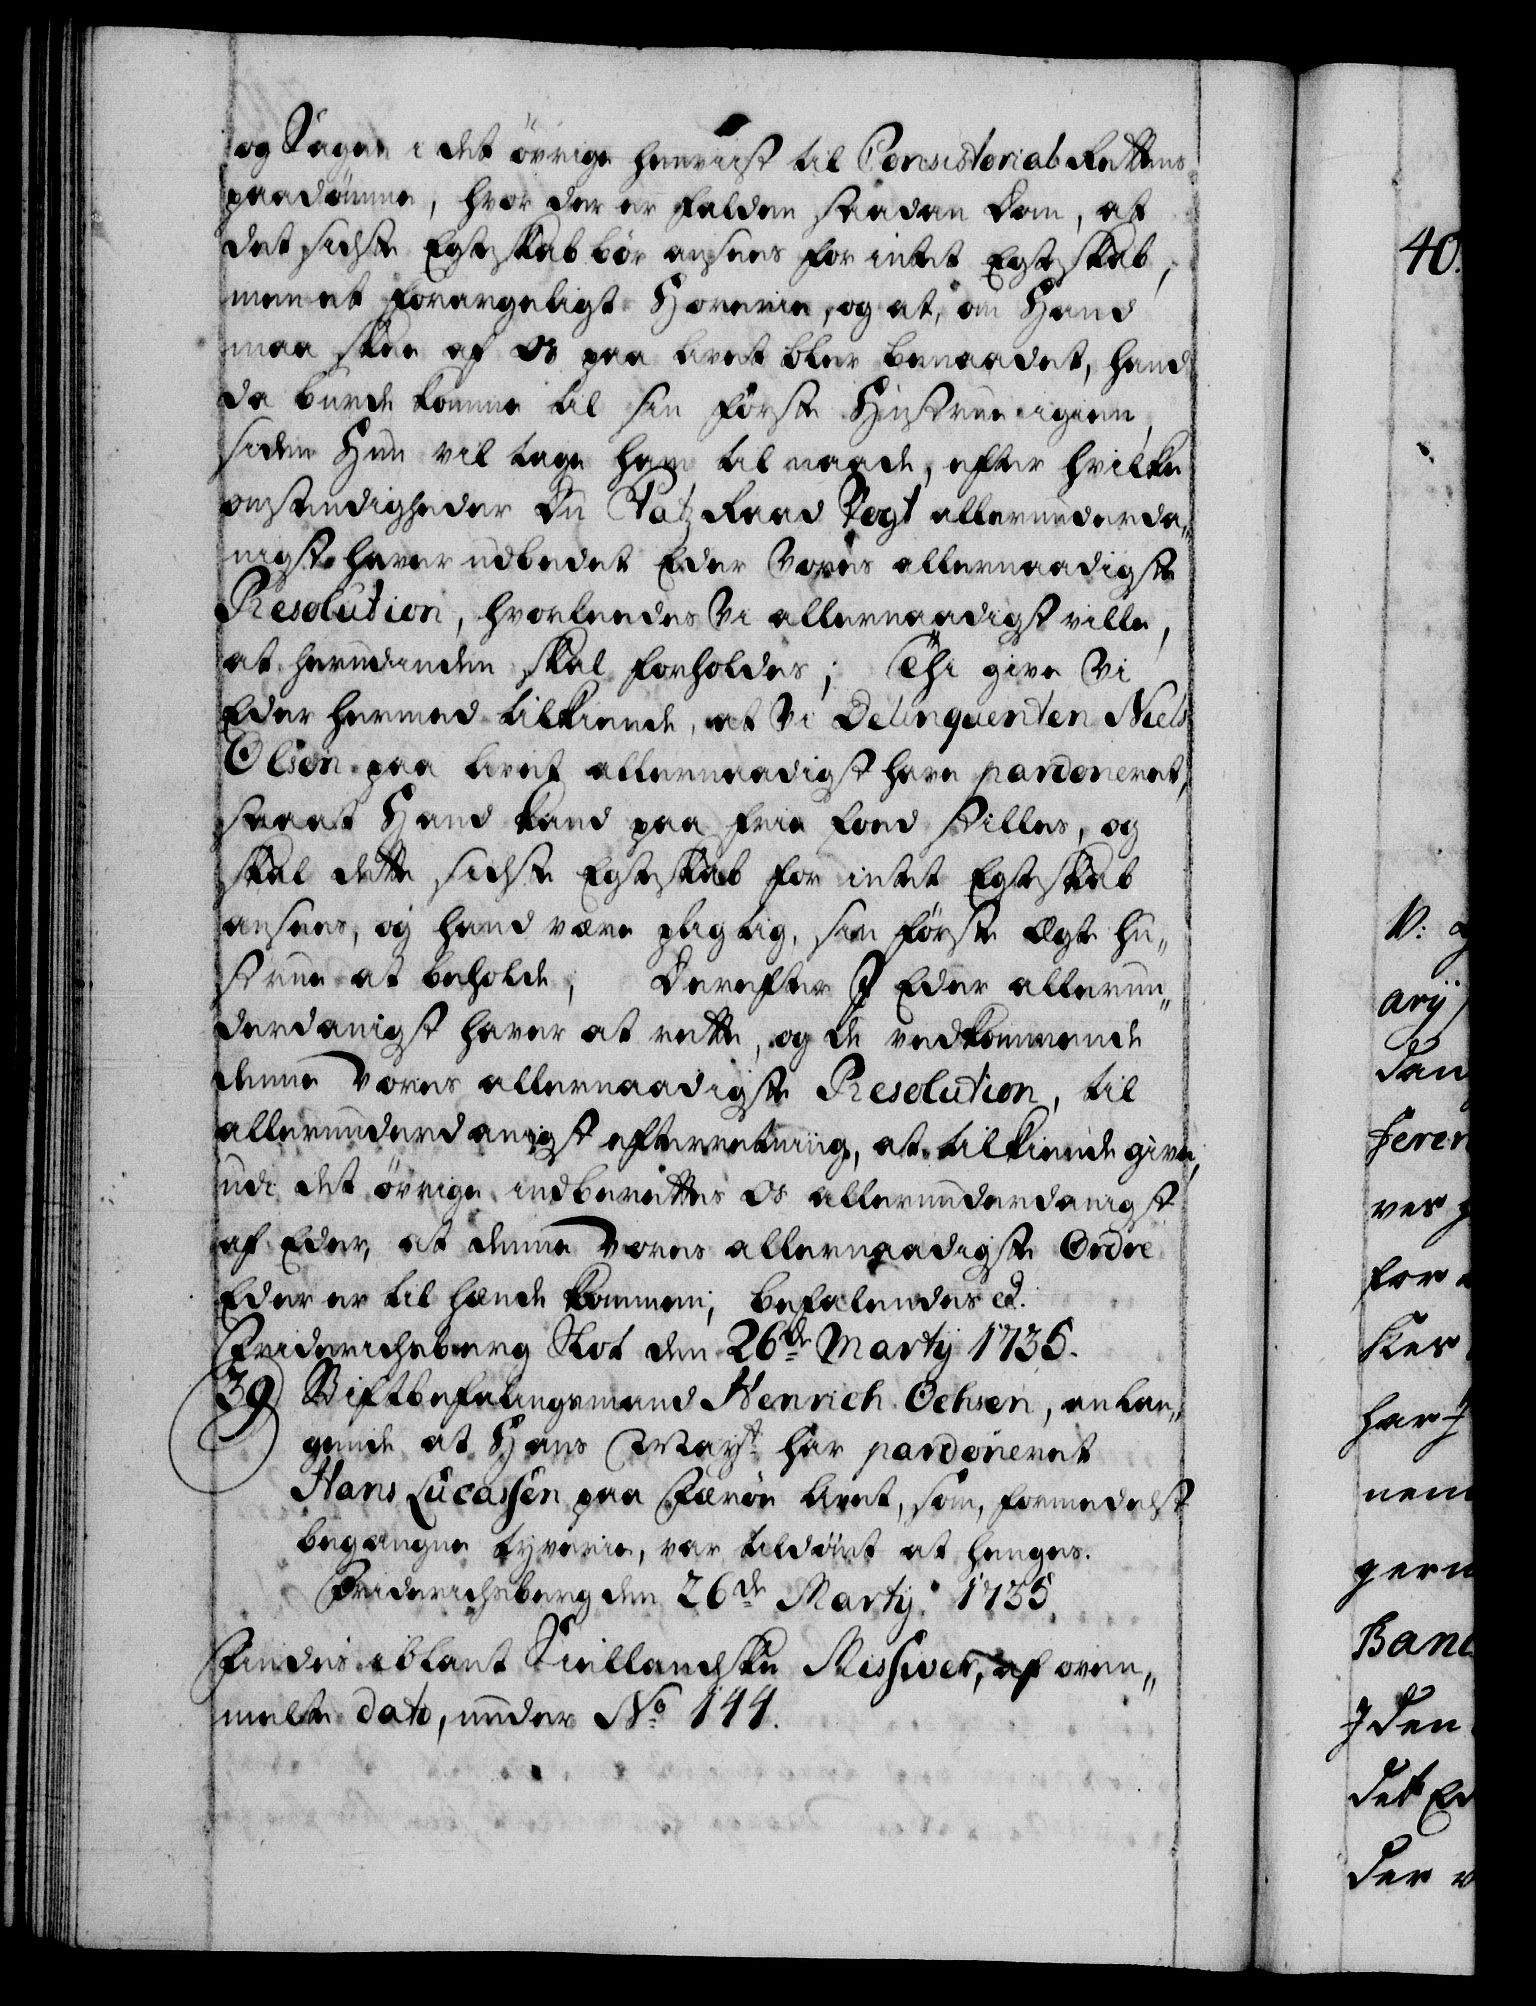 og Sagen i det övrige henviist til Consistorial Rettens
paadömme, hvor der er falden saadan Dom, at
det sidste Egteskab bör ansees for intet Egteskab,
men et forargeligt Horerie, og at, om Hand
maa skee af Os paa livet blev benaadet, hand
da burde komme til sin förste Hustrue igien,
siden Hun vil tage ham til naade, efter hvilke
omstendigheder Du Etatz Raad Vogt allerunderda„
nigst haver udbedet Eder Vores allernaadigste
Resolution, hvorleedes Vi allernaadigst ville,
at herudinden skal forholdes; Thi give Vi
Eder hermed tilkiende, at Vi Delinquenten Niels
Olsen paa livet allernaadigst have pardoneret,
saa at Hand kand paa frie foed stilles, og
skal dette sidste Egteskab for intet Egteskab
ansees, og hand være pligtig, sin förste Ægte Hu„
strue at beholde; Derefter I Eder allerun„
derdanigst haver at rette, og de vedkommende
denne Vores allernaadigste Resolution, til
allerunderdanigst efterretning, at tilkiende give,
udi det övrige indberettes Os allerunderdanigst
af Eder, at denne Vores allernaadigste Ordre
Eder er til hænde kommen; befalendes ed.
Friderichsberg Slot den 26de Martij 1735.
39 Stiftbefalingsmand Henrich Ochsen, anlan„
gende at Hans Mayt har pardoneret
Hans Lucassen paa Færöe livet, som, formedelst
begangne tyverie, var tildömt at henges.
Friderichsberg den 26de Martij 1735
Findes iblant Siellandske Missiver, af oven„
melte dato, under No 144.
40.